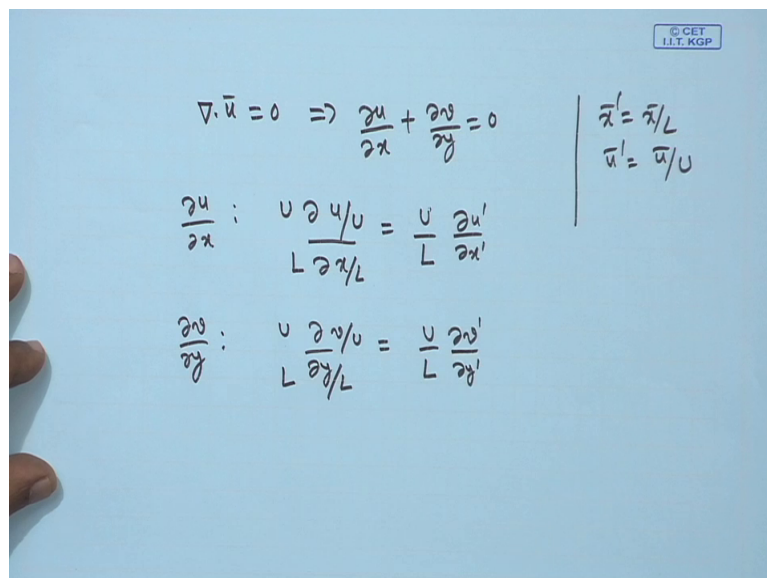 © CET
I.I.T. KGP
∇·ū = 0 ⇒ ∂u/∂x + ∂v/∂y = 0
x̄' = x̄/L
ū' = ū/U
∂u/∂x : U ∂ u/U / L ∂ x/L = U/L ∂u'/∂x'
∂v/∂y : U ∂ v/U / L ∂y/L = U/L ∂v'/∂y'